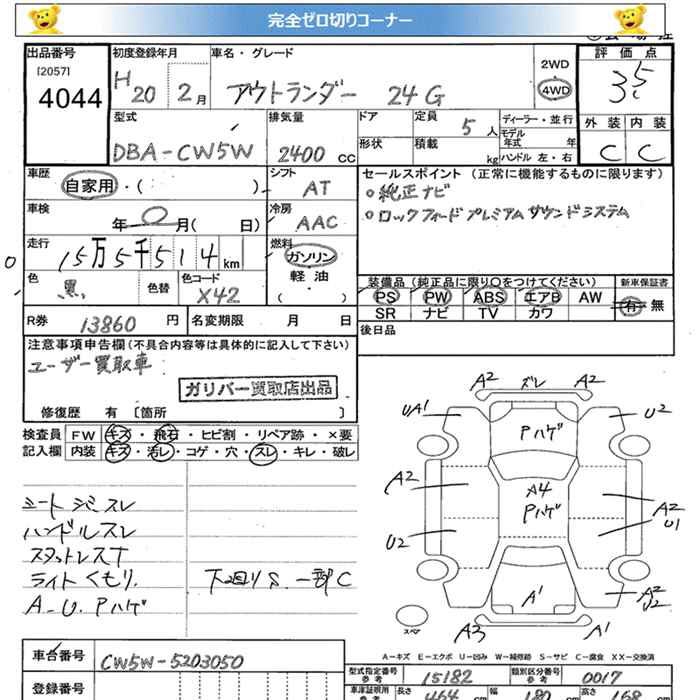 完全ゼロ切りコーナー
出品番号 初度登録年月 車名・グレード 評価点
[2057]
4044 H20 2月 アウトランダー 24G 2WD 4WD 3.5
型式 排気量 ドア 定員 5人 ディーラー・並行 外装 内装
モデル年式 年
DBA-CW5W 2400cc 形状 積載 kg ハンドル 左・右 C C
車歴 シフト セールスポイント (正常に機能するものに限ります)
自家用・( ) AT 。純正ナビ
車検 冷房 。ロックフォードプレミアムサウンドシステム
年0月( 日) AAC
走行 燃料
15万5千514km ガソリン
色 色替 色コード 軽油 装備品 (純正品に限り○をつけてください) 新車保証書
黒 X42 ( ) PS PW ABS エアB AW 有・無
SR ナビ TV カワ
R券 13860円 名変期限 月 日 後日品
注意事項申告欄(不具合内容等は具体的に記入して下さい)
ユーザー買取車
ガリバー買取店出品
修復歴 有 〔箇所 〕
検査員 FW キズ・飛石・ヒビ割・リペア跡・×要
記入欄 内装 キズ・汚レ・コゲ・穴・スレ・キレ・破レ
シートジミスレ
ハンドルスレ
スタットレスT
ライトくもり. 下廻りS.一部C
A-U.Pハゲ
A2 ズレ A2
UA1 U2
Pハゲ
A2 A4 A2
Pハゲ U1
U2
A1 A2
U2
スペア A3 A1
A-キズ E-エクボ U-凹み W-補修跡 S-サビ C-腐食 XX-交換済
車台番号 CW5W-5203050
型式指定番号 参考 15182 類別区分番号 参考 0017
登録番号 長さ 464 幅 180 高さ 168